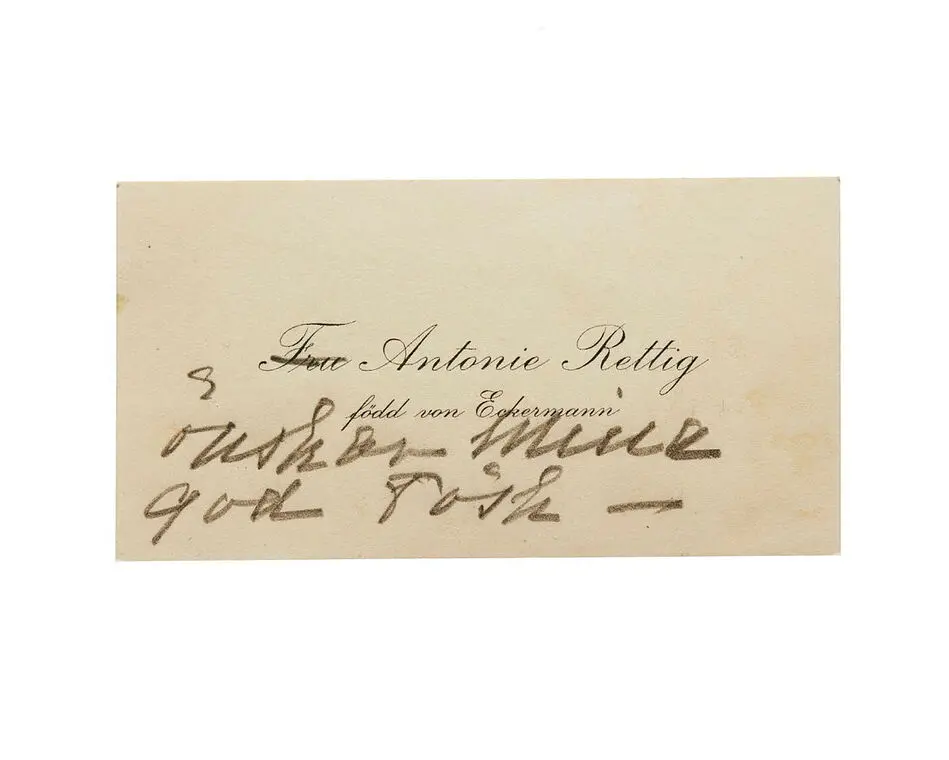 Fru Antonie Rettig
född von Eckermann
önskar Mina
god Tösk —